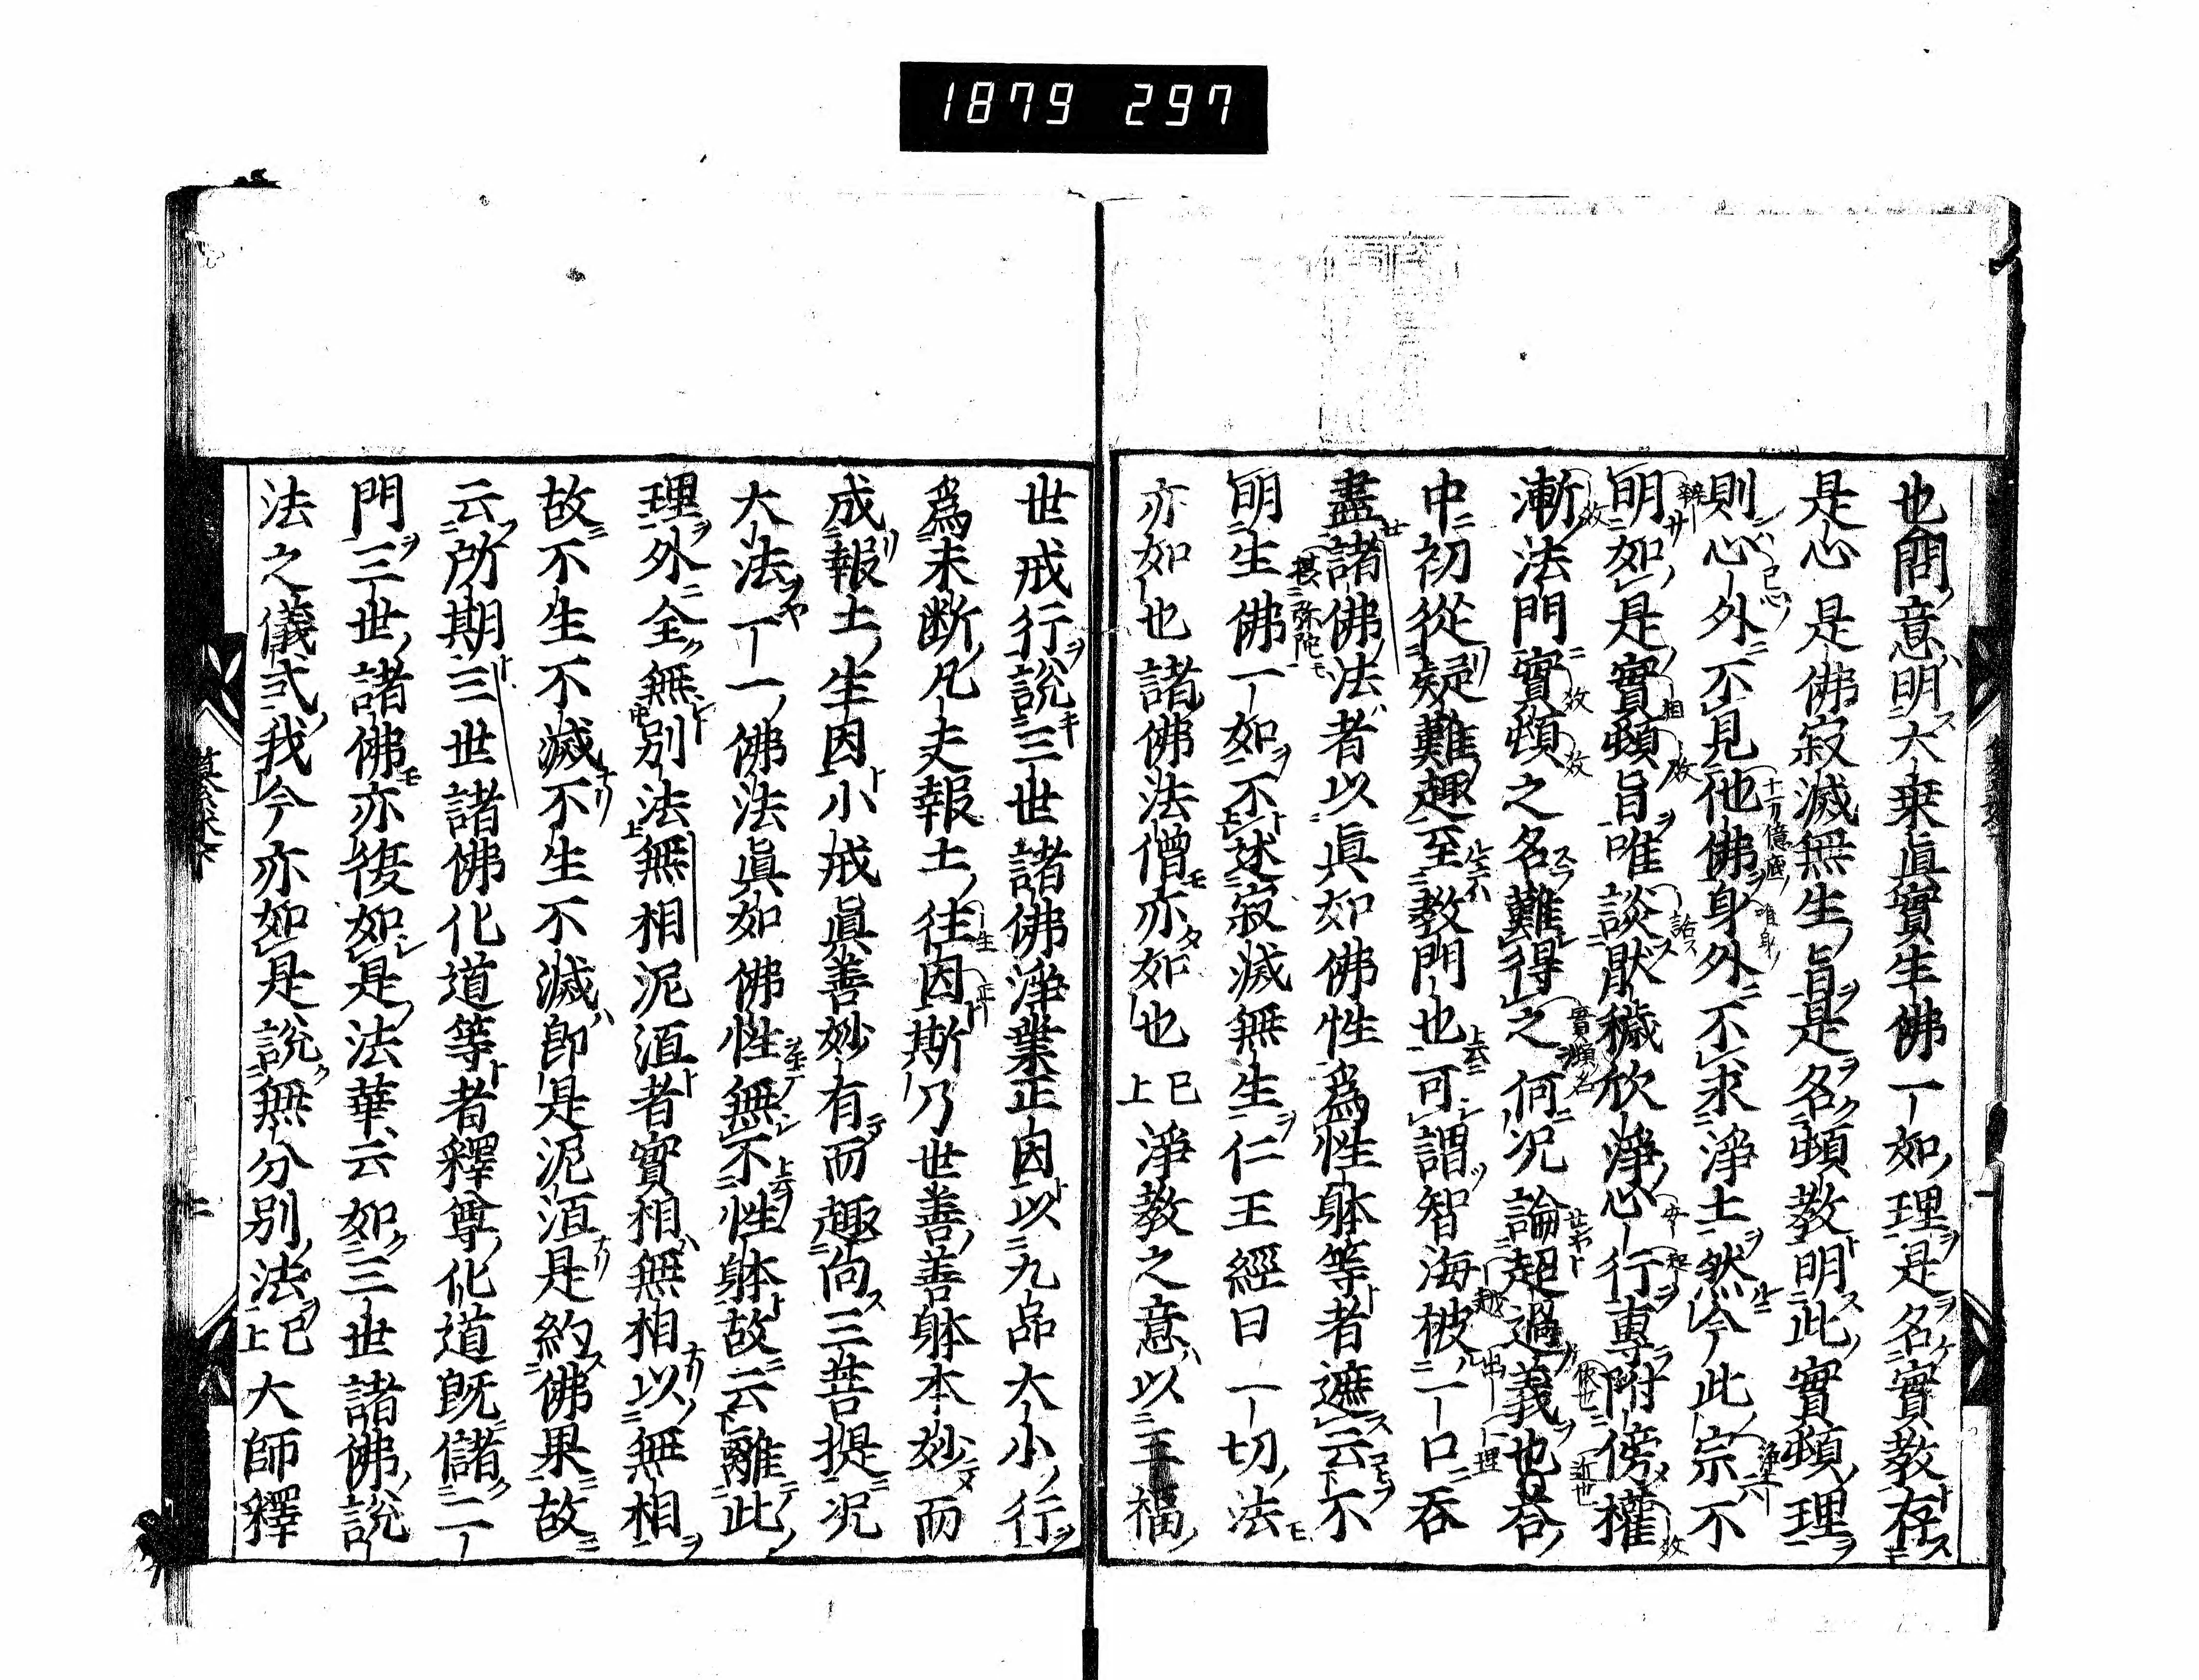 1879 297
也問意明大乗眞實生佛一如理是名實教存
是心是佛寂滅無生旨是名頓教明此實頓理
則心外不見他佛身外不求淨土然今此宗不
明如是實頓旨唯談猒穢欣淨心行專附傍權
漸法門實頓之名難得之何况論超過義也答
中初從疑難趣至教門也可謂智海被一口呑
盡諸佛法者以眞如佛性爲性躰等者遮云不
明生佛一如不述寂滅無生仁王經曰一切法
亦如也諸佛法僧亦如也已上淨教之意以三福
世戒行説三世諸佛淨業正因以九品大小行
爲未断凡夫報土往因斯乃世善善躰本妙而
成報土生因小戒眞善妙有而趣向三菩提况
大法一一佛法眞如佛性無不性躰故云離此
理外全無別法無相泥洹者實相無相以無相
故不生不滅不生不滅即是泥洹是約佛果故
云所期三世諸佛化道等者釋尊化道既儲二
門三世諸佛亦復如是法華云如三世諸佛説
法之儀式我今亦如是説無分別法已上大師釋